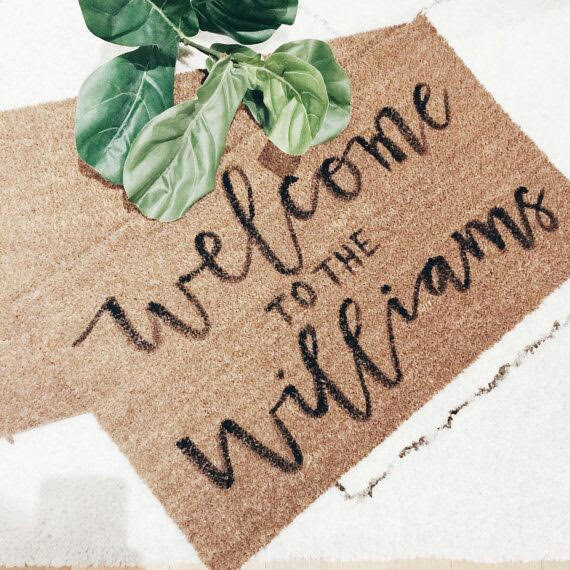 welcome
TO THE
williams